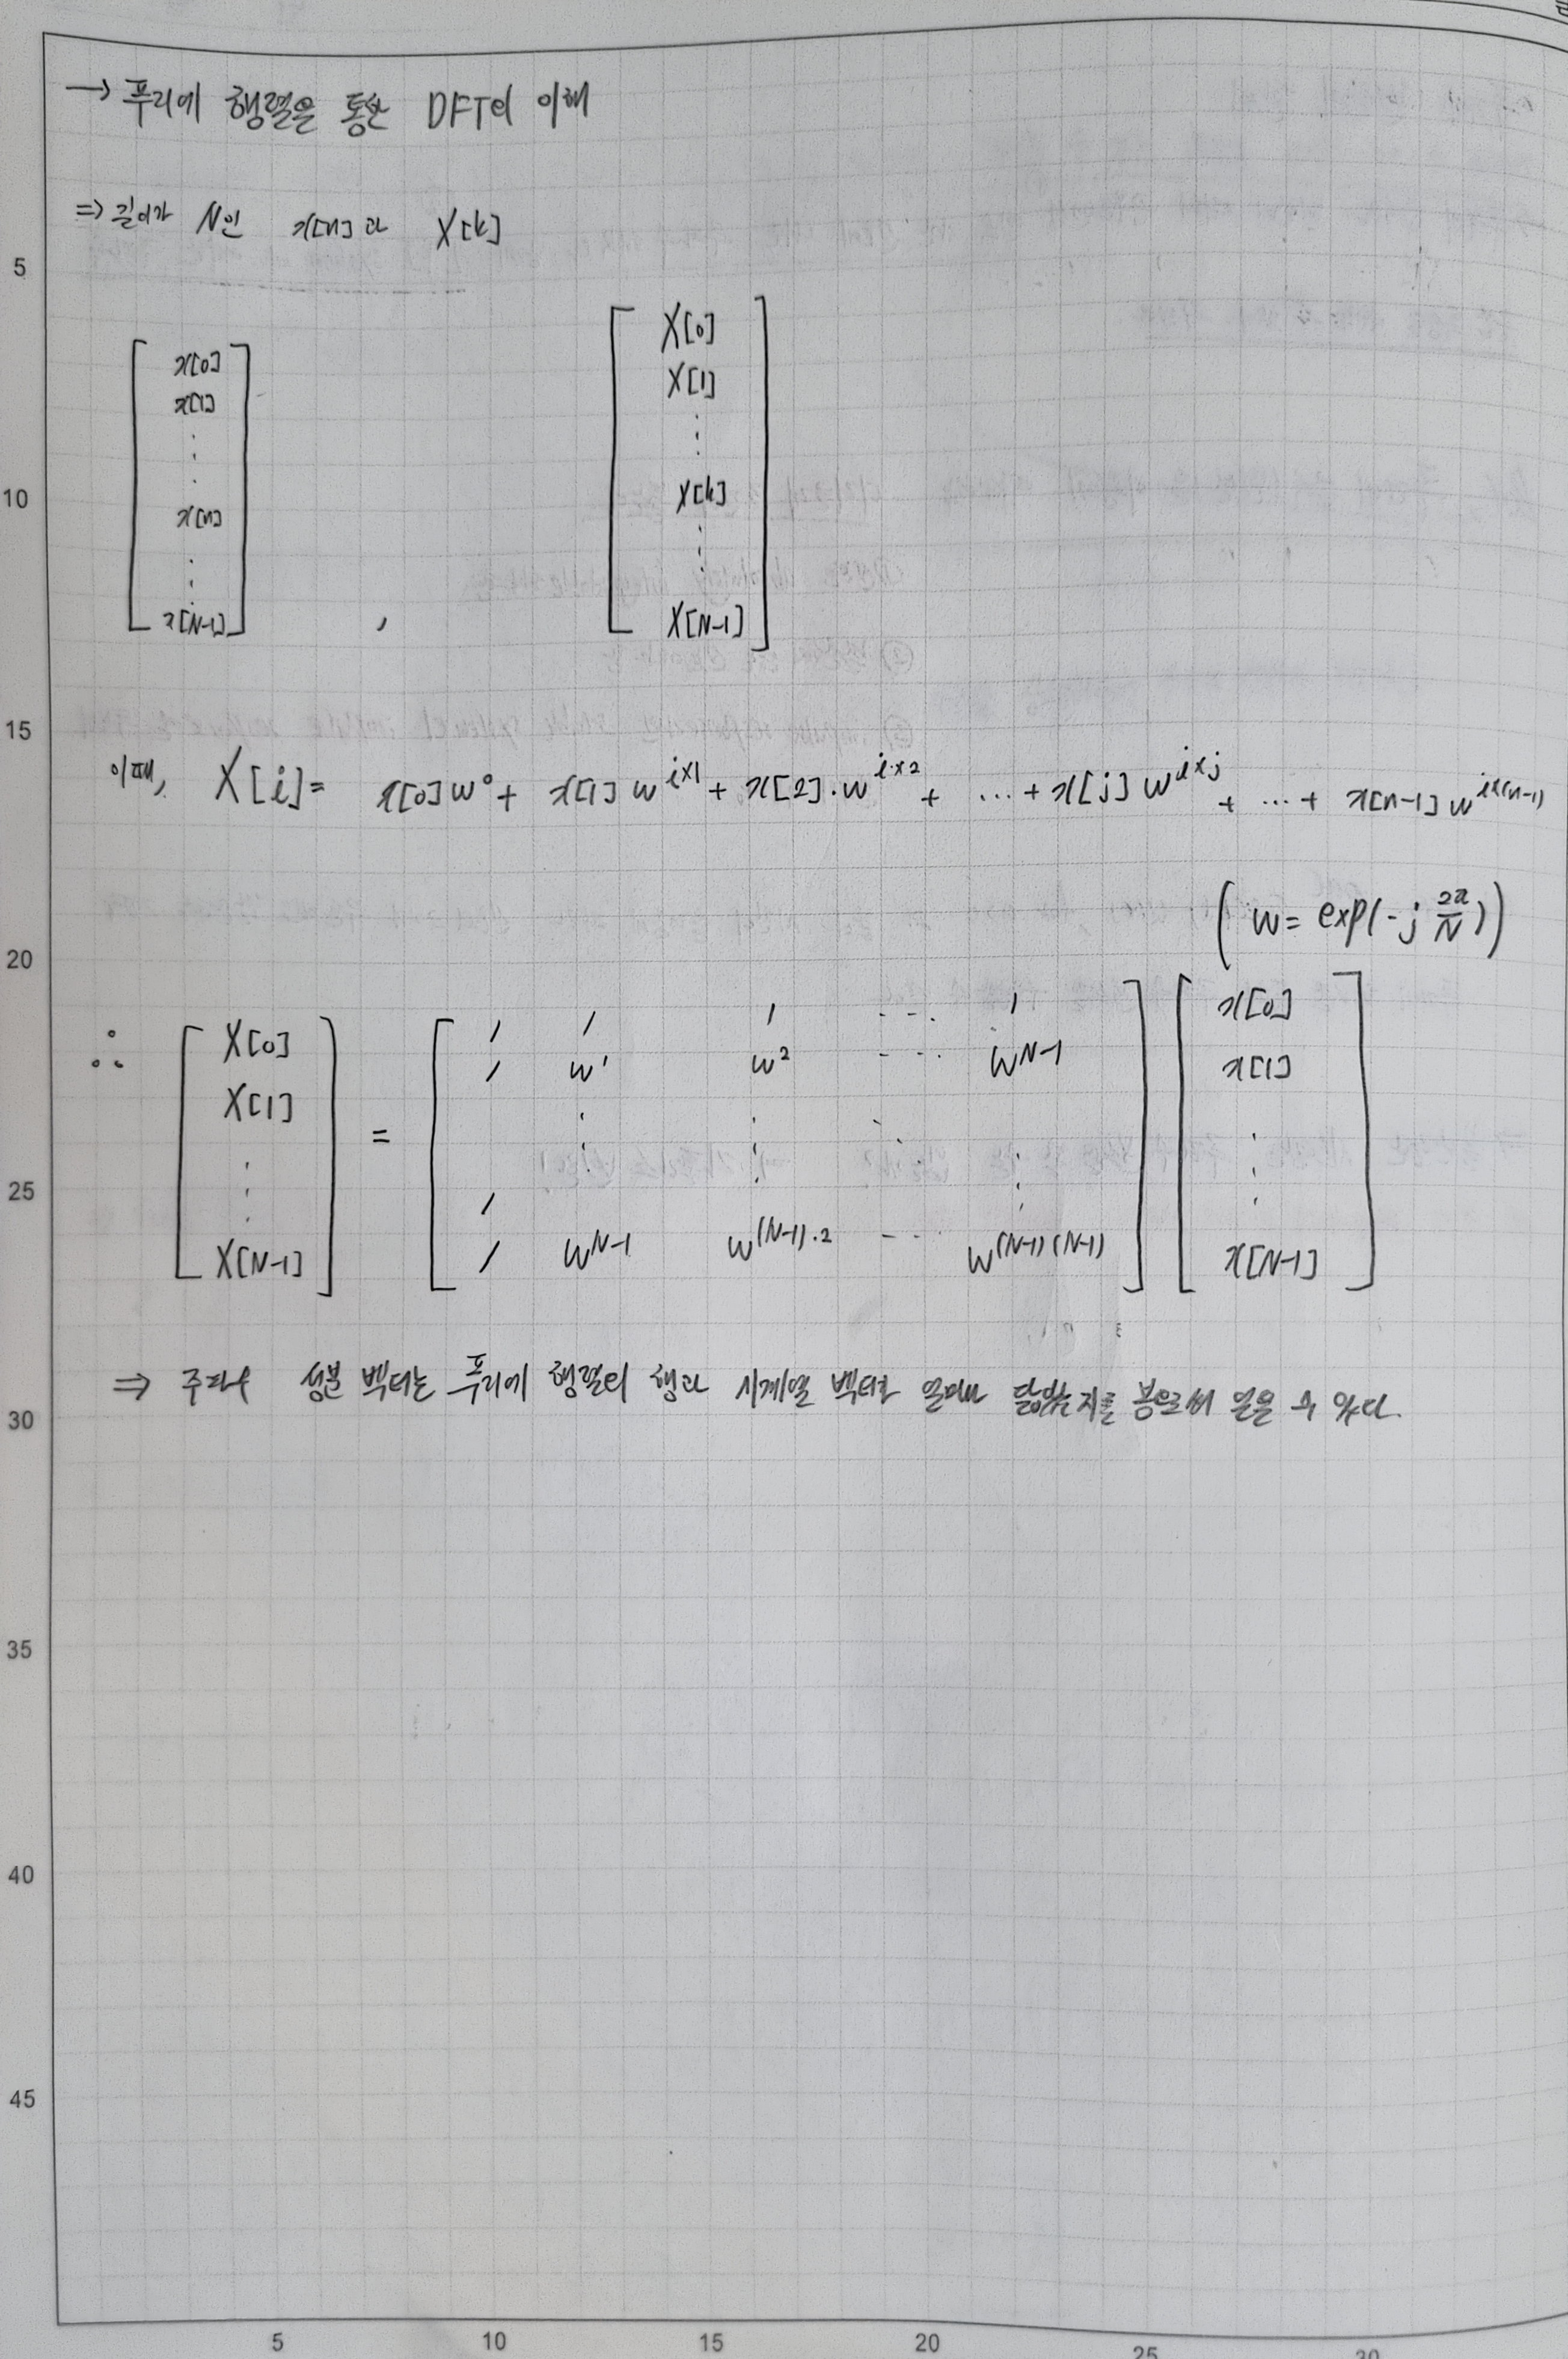 → 푸리에 행렬을 통한 DFT의 이해
⇒ 길이가 N인 x[n]과 X[k]
[ x[0] x[1] ⋮ x[n] ⋮ x[N-1] ] , [ X[0] X[1] ⋮ X[k] ⋮ X[N-1] ]
이때, X[i] = x[0]w⁰ + x[1]w^{i×1} + x[2]·w^{i×2} + ... + x[j]w^{i×j} + ... + x[n-1]w^{i×(n-1)}
( w = exp(-j 2π/N) )
∴ [ X[0] X[1] ⋮ X[N-1] ] = [ 1 1 1 ... 1
1 w¹ w² ... w^{N-1}
⋮ ⋮ ⋱ ⋮
1
1 w^{N-1} w^{(N-1)·2} ... w^{(N-1)(N-1)} ] [ x[0] x[1] ⋮ x[N-1] ]
⇒ 주파수 성분 벡터는 푸리에 행렬의 행과 시계열 벡터가 얼마나 닮았는지를 봄으로써 얻을 수 있다.
5
10
15
20
25
30
35
40
45
5 10 15 20 25 30